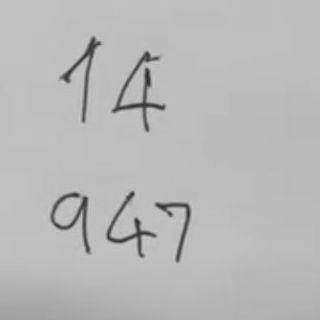 14
947